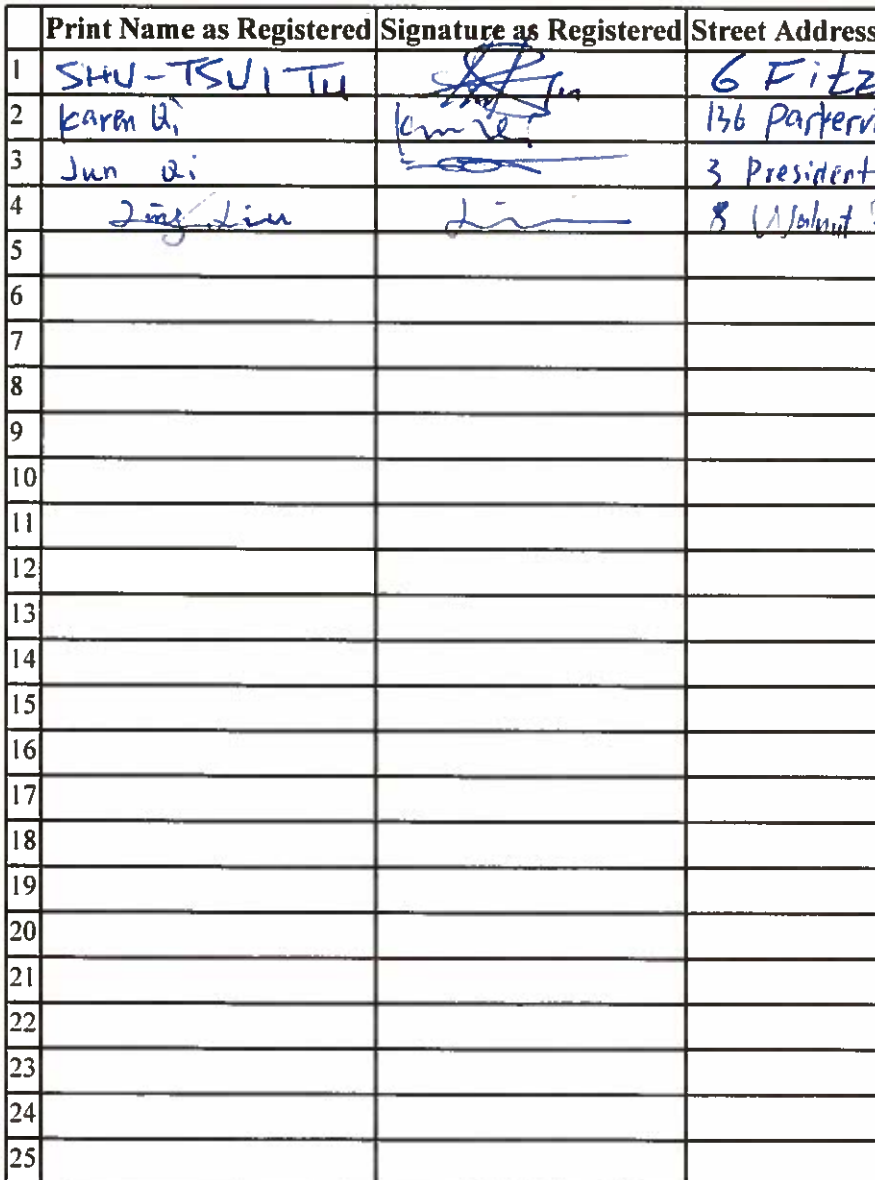 Print Name as Registered Signature as Registered Street Address
1 SHU-TSUI TU 6 Fitz
2 Karen Qi 136 Parkervi
3 Jun Qi 3 President
4 Jing Liu 8 Walnut
5
6
7
8
9
10
11
12
13
14
15
16
17
18
19
20
21
22
23
24
25